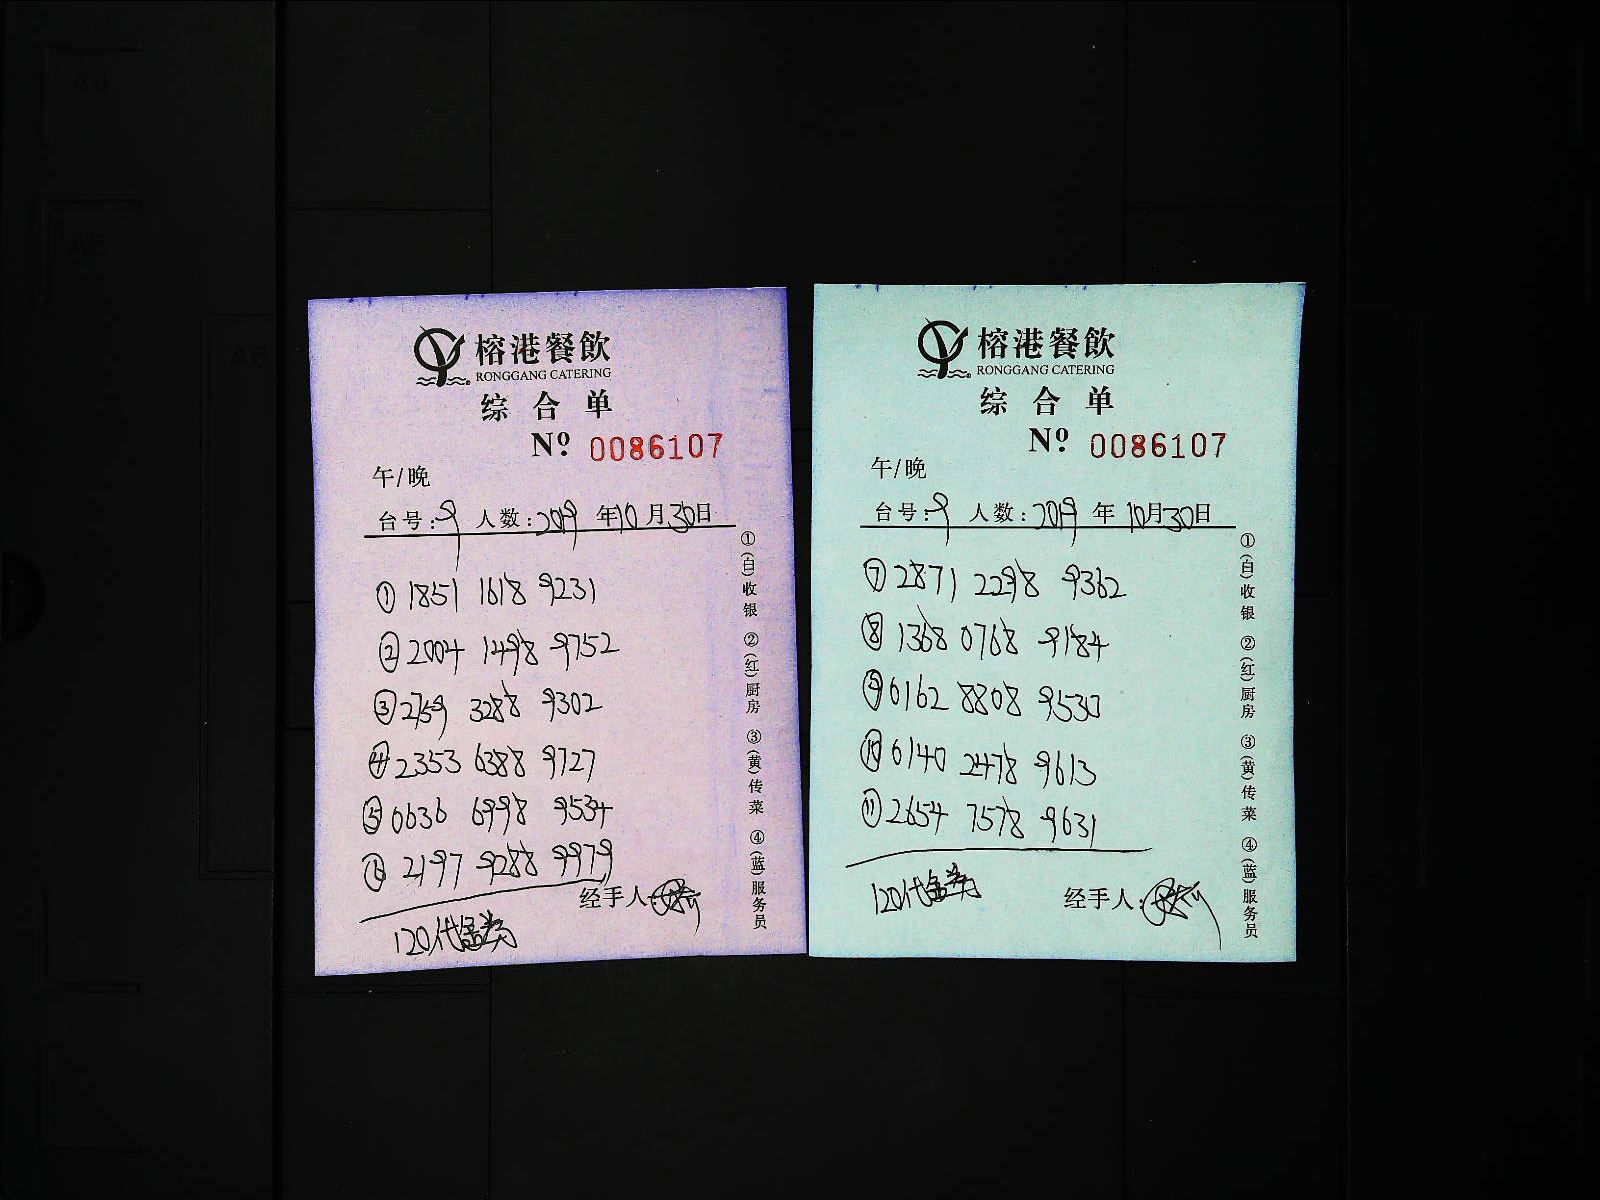 榕港餐飲
RONGGANG CATERING
综合单
Nº 0086107
午/晚
台号:9 人数:2019 年10月30日
① 1851 1618 9231
② 2004 1498 9752
③ 2759 3288 9302
④ 2353 6388 9727
⑤ 0636 6998 9534
⑥ 2197 9288 9979
经手人:
120代金券
①(白)收银 ②(红)厨房 ③(黄)传菜 ④(蓝)服务员
榕港餐飲
RONGGANG CATERING
综合单
Nº 0086107
午/晚
台号:9 人数:2019 年10月30日
⑦ 2871 2298 9362
⑧ 1368 0768 9184
⑨ 0162 8808 9530
⑩ 0140 2478 9613
⑪ 2654 7578 9631
120代金券 经手人:
①(白)收银 ②(红)厨房 ③(黄)传菜 ④(蓝)服务员